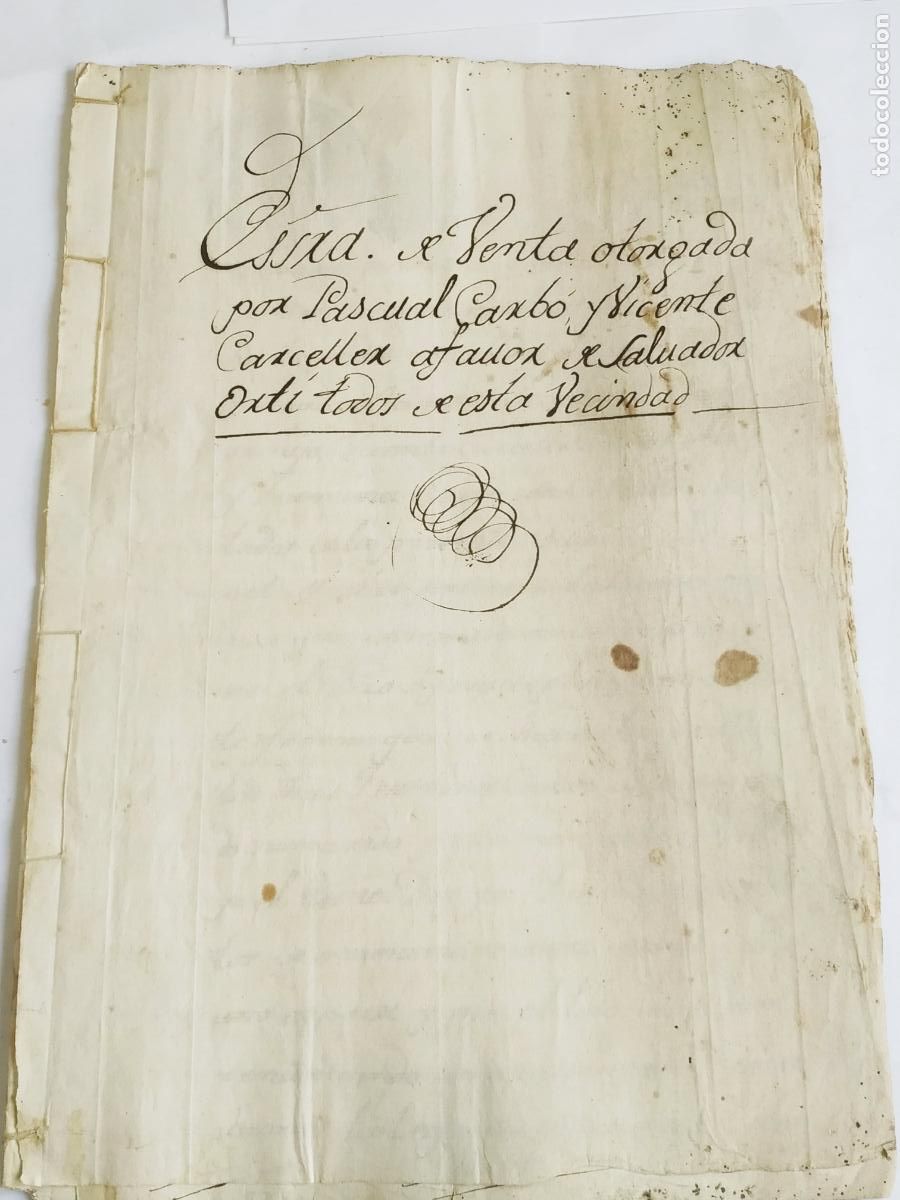 Essra. de Venta otorgada
por Pascual Carbó, y Vicente
Carceller a favor de Salvador
Orti todos de esta Vecindad
todocoleccion